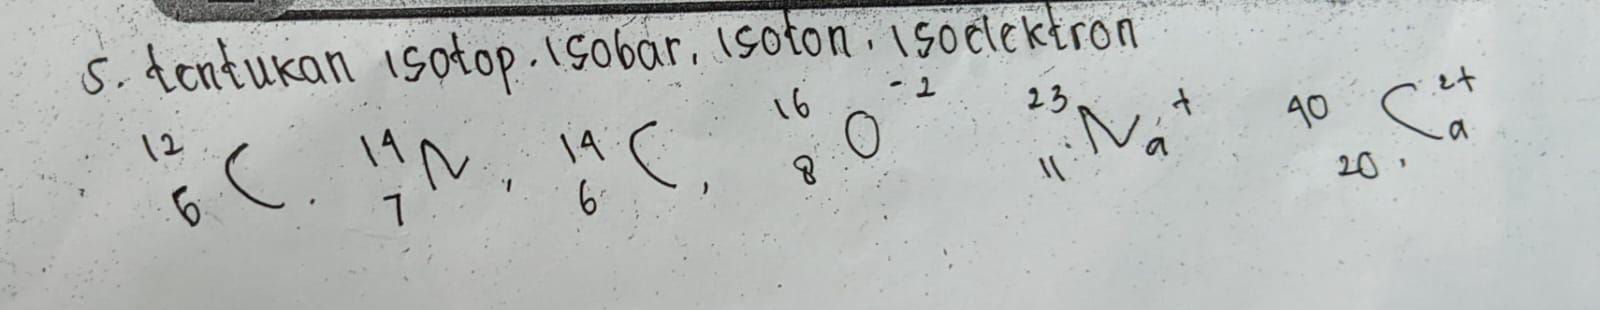 5. tentukan isotop. isobar, isoton, isoelektron
¹²₆C. ¹⁴₇N, ¹⁴₆C, ¹⁶₈O⁻² ²³₁₁Na⁺ ⁴⁰₂₀Ca²⁺